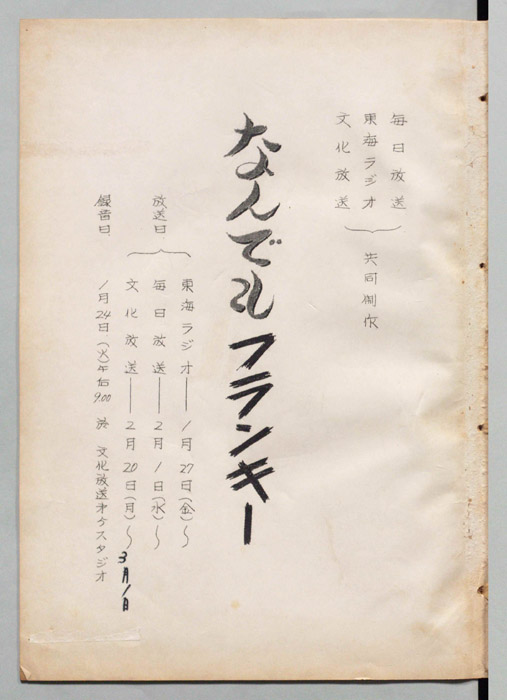 毎日放送
東海ラジオ
文化放送
共同制作
なんでもフランキー
放送日
東海ラジオ――1月27日(金)〜
毎日放送――2月1日(水)〜
文化放送――2月20日(月)〜
3月1日
録音日
1月24日(火)午后9.00 於 文化放送オケスタジオ